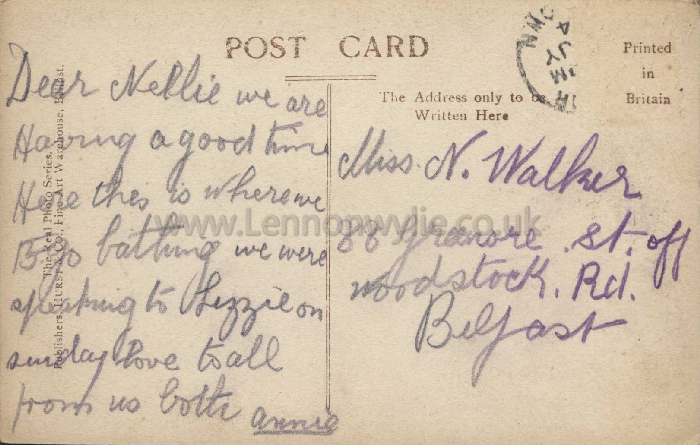 POST CARD
Printed
in
Britain
The Address only to be
Written Here
Dear Nellie we are
Having a good time
Here this is where we
go bathing we were
speaking to Lizzie on
sunday love to all
from us both annie
Miss. N. Walker
St. off
woodstock. Rd.
Belfast
The Real Photo Series.
Publishers, HURST & Co., Fine Art Warehouse, Belfast.
www.Lennonwylie.co.uk